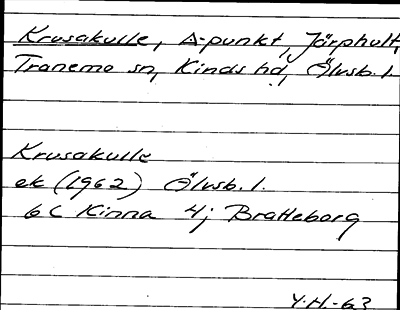 Krusakulle, Δ-punkt, Järphult,
Tranemo sn, Kinds hd, Älvsb. l.
Krusakulle
ek (1962) Älvsb. l.
6C Kinna 4j Bratteborg
Y.H.-63